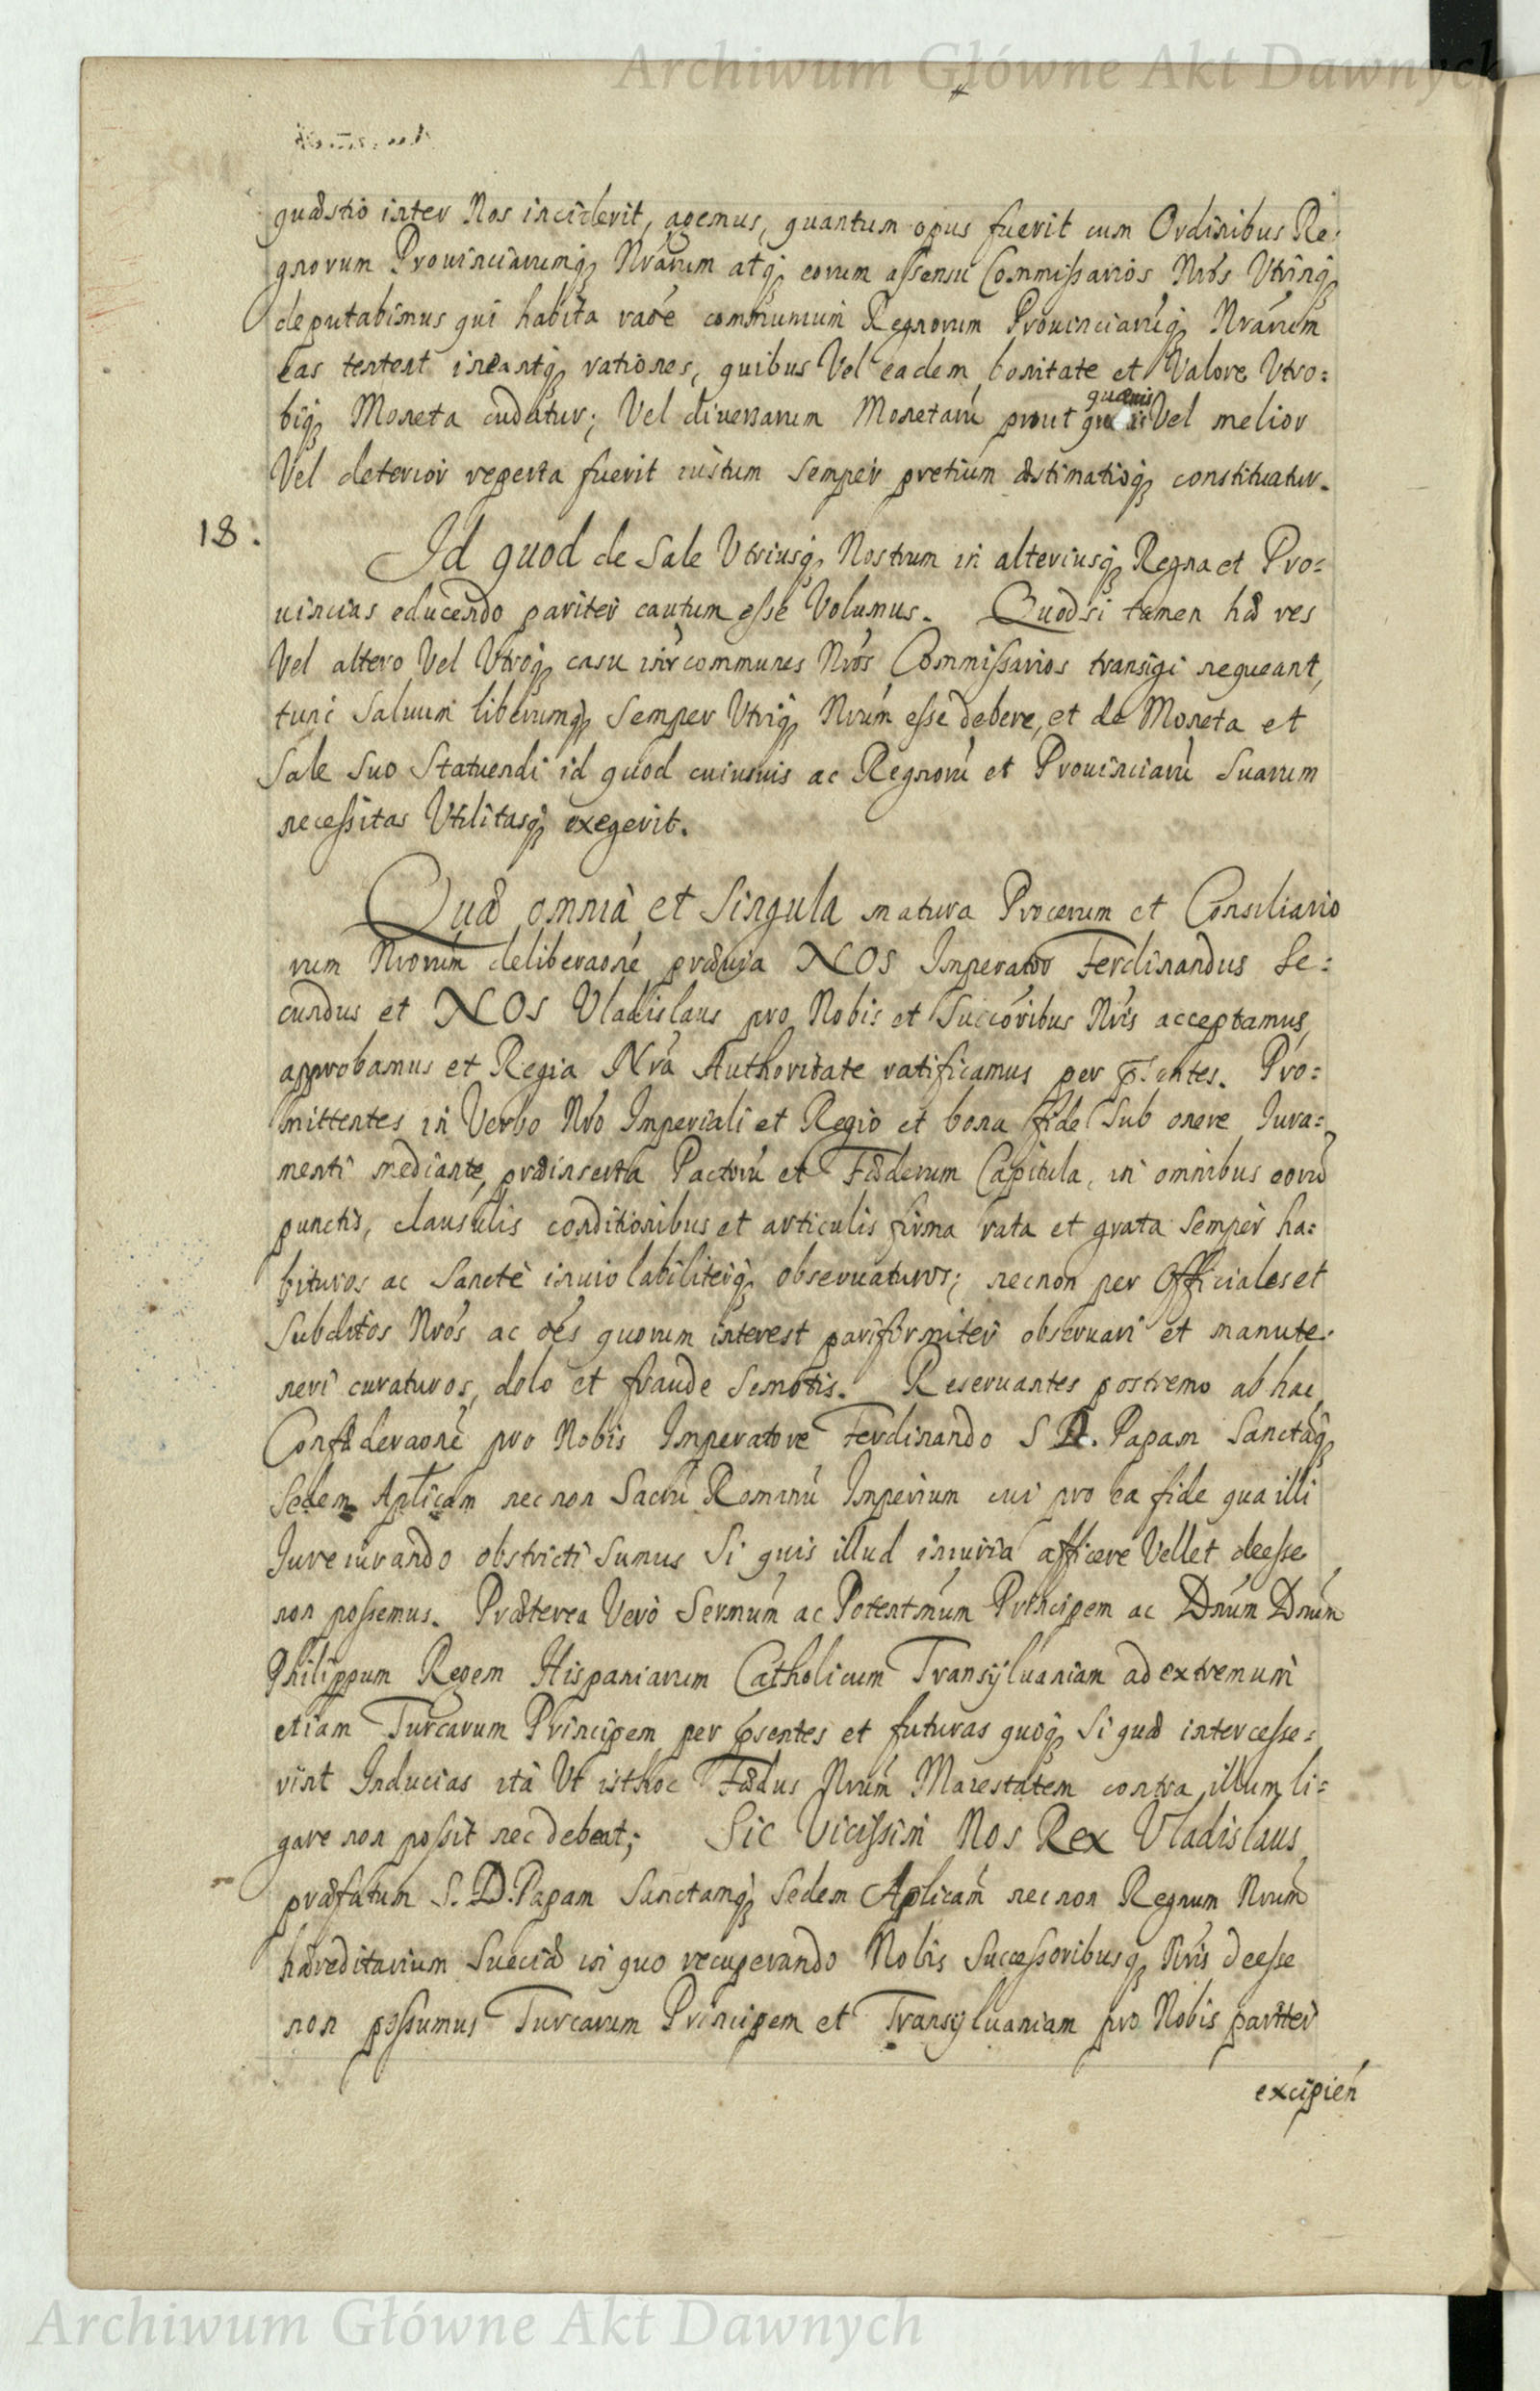 Archiwum Główne Akt Dawnych
quæstio inter Nos inciderit, agemus, quantum opus fuerit cum Ordinibus Re:
gnorum Prouinciarumq; Nrárum atq; eorum assensu Commissarios Nrós Vtrinq;
deputabimus qui habita raóe communium Regnorum Prouinciarúq; Nrárum
eas tentent ineantq; rationes, quibus Vel eadem bonitate et Valore Vtro:
biq; Moneta cudatur; Vel diuersarum Monetarú prout quæuis Vel melior
Vel deterior reperta fuerit iustum semper pretium æstimatioq; constituatur.
18. Id quod de Sale Vtriusq; Nostrum in alteriusq; Regna et Pro:
uincias educendo pariter cautum esse Volumus. Quodsi tamen hæ res
Vel altero Vel Vtroq; casu intr communes Nrós Commissarios transigi nequeant,
tunc Saluum liberumq; Semper Vtriq; Nrúm esse debere, et de Moneta et
Sale Suo Statuendi id quod cuiusuis ac Regnorú et Prouinciarú Suarum
necessitas Vtilitasq; exegerit.
Quæ omnia et Singula matura Procerum et Consiliario
rum Nrorúm deliberaoné præuia NOS Imperator Ferdinandus Se:
cundus et NOS Vladislaus pro Nobis et Succóribus Nrís acceptamus,
approbamus et Regia Nrá Authoritate ratificamus per p̄sentes. Pro:
mittentes in Verbo Nró Imperiali et Regio et bona fide Sub onere Iura:
menti mediante, præinserta Pactorú et Fæderum Capitula, in omnibus eorú
punctis, clausulis conditionibus et articulis firma rata et grata Semper ha:
bituros ac Sancte inuiolabiliterq; obseruaturos; necnon per Officiales et
Subditos Nrós ac oés quorum interest pariformiter obseruari et manute:
neri curaturos, dolo et fraude Semotis. Reseruantes postremo ab hac
Confæderaoné pro Nobis Imperatore Ferdinando S D. Papam Sanctáq;
Sedem Aplicam necnon Sacrú Romanú Imperium cui pro ea fide qua illi
Iureiurando obstricti Sumus Si quis illud iniuria afficere Vellet deesse
non possemus. Præterea Verò Sermúm ac Potentmúm Principem ac Dnúm Dnúm
Philippum Regem Hispaniarum Catholicum Transyluaniam ad extremum
etiam Turcarum Principem per p̄sentes et futuras quoq; Si quæ intercesse:
rint Inducias ita Vt isthoc Fædus Nrúm Maiestatem contra illum li:
gare non possit nec debeat; Sic Vicissim Nos Rex Vladislaus
præfatum S. D. Papam Sanctamq; Sedem Aplicam necnon Regnum Nrum
hæreditarium Sueciæ in quo recuperando Nobis Successoribusq; Nrís deesse
non possumus Turcarum Principem et Transyluaniam pro Nobis pariter
excipién
Archiwum Główne Akt Dawnych